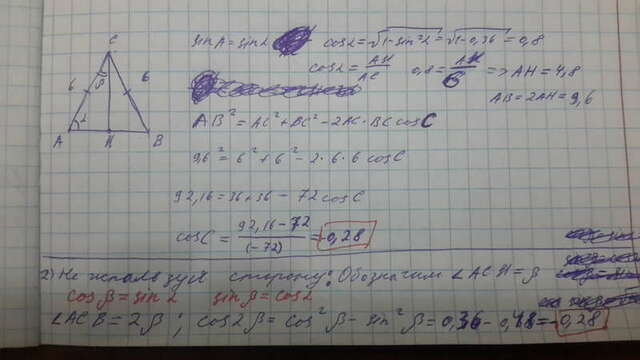 sinA = sin2 cos2 = √1-sin²2 = √1-0,36 = 0,8
cos2 = AH/AC 0,8 = AH/6 => AH = 4,8
AB = 2AH = 9,6
C
β
6 6
A 2 H B
AB² = AC² + BC² - 2AC · BC cosC
9,6² = 6² + 6² - 2·6·6 cosC
92,16 = 36 + 36 - 72 cosC
cosC = 92,16-72/(-72) = -0,28
2) Не используя сторону: Обозначим ∠ACH = β
cosβ = sin2 sinβ = cos2
∠ACB = 2β ; cos2β = cos²β - sin²β = 0,36 - 0,48 = -0,28